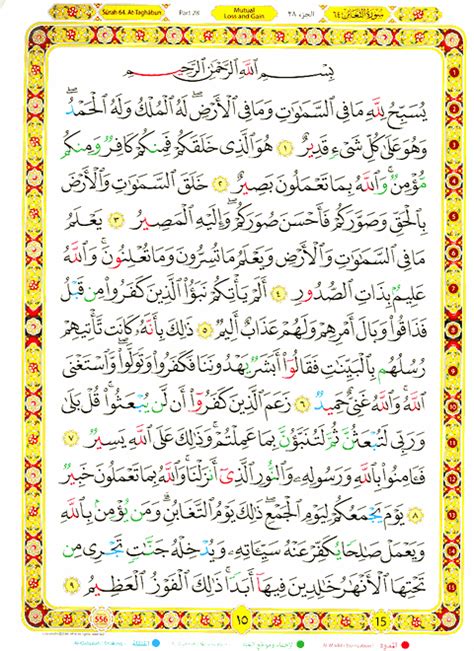 Sūrah 64. At-Taghābun Part 28 Mutual Loss and Gain الجزء ٢٨ سُورَةُ التَّغَابُنِ ٦٤
بِسْمِ ٱللَّهِ ٱلرَّحْمَٰنِ ٱلرَّحِيمِ
يُسَبِّحُ لِلَّهِ مَا فِى ٱلسَّمَٰوَٰتِ وَمَا فِى ٱلْأَرْضِ ۖ لَهُ ٱلْمُلْكُ وَلَهُ ٱلْحَمْدُ ۖ
وَهُوَ عَلَىٰ كُلِّ شَىْءٍ قَدِيرٌ ١ هُوَ ٱلَّذِى خَلَقَكُمْ فَمِنكُمْ كَافِرٌ وَمِنكُم
مُّؤْمِنٌ ۚ وَٱللَّهُ بِمَا تَعْمَلُونَ بَصِيرٌ ٢ خَلَقَ ٱلسَّمَٰوَٰتِ وَٱلْأَرْضَ
بِٱلْحَقِّ وَصَوَّرَكُمْ فَأَحْسَنَ صُوَرَكُمْ ۖ وَإِلَيْهِ ٱلْمَصِيرُ ٣ يَعْلَمُ
مَا فِى ٱلسَّمَٰوَٰتِ وَٱلْأَرْضِ وَيَعْلَمُ مَا تُسِرُّونَ وَمَا تُعْلِنُونَ ۚ وَٱللَّهُ
عَلِيمٌۢ بِذَاتِ ٱلصُّدُورِ ٤ أَلَمْ يَأْتِكُمْ نَبَؤُا۟ ٱلَّذِينَ كَفَرُوا۟ مِن قَبْلُ
فَذَاقُوا۟ وَبَالَ أَمْرِهِمْ وَلَهُمْ عَذَابٌ أَلِيمٌ ٥ ذَٰلِكَ بِأَنَّهُۥ كَانَت تَّأْتِيهِمْ
رُسُلُهُم بِٱلْبَيِّنَٰتِ فَقَالُوٓا۟ أَبَشَرٌ يَهْدُونَنَا فَكَفَرُوا۟ وَتَوَلَّوا۟ ۚ وَّٱسْتَغْنَى
ٱللَّهُ ۚ وَٱللَّهُ غَنِىٌّ حَمِيدٌ ٦ زَعَمَ ٱلَّذِينَ كَفَرُوٓا۟ أَن لَّن يُبْعَثُوا۟ ۚ قُلْ بَلَىٰ
وَرَبِّى لَتُبْعَثُنَّ ثُمَّ لَتُنَبَّؤُنَّ بِمَا عَمِلْتُمْ ۚ وَذَٰلِكَ عَلَى ٱللَّهِ يَسِيرٌ ٧
فَـَٔامِنُوا۟ بِٱللَّهِ وَرَسُولِهِۦ وَٱلنُّورِ ٱلَّذِىٓ أَنزَلْنَا ۚ وَٱللَّهُ بِمَا تَعْمَلُونَ خَبِيرٌ
٨ يَوْمَ يَجْمَعُكُمْ لِيَوْمِ ٱلْجَمْعِ ۖ ذَٰلِكَ يَوْمُ ٱلتَّغَابُنِ ۗ وَمَن يُؤْمِنۢ بِٱللَّهِ
وَيَعْمَلْ صَٰلِحًا يُكَفِّرْ عَنْهُ سَيِّـَٔاتِهِۦ وَيُدْخِلْهُ جَنَّٰتٍ تَجْرِى مِن
تَحْتِهَا ٱلْأَنْهَٰرُ خَٰلِدِينَ فِيهَآ أَبَدًا ۚ ذَٰلِكَ ٱلْفَوْزُ ٱلْعَظِيمُ ٩
556 ١٥ 15
القلقلة
المدود